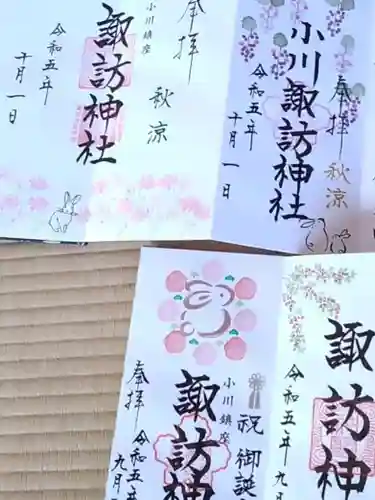 奉拝
秋涼
小川鎮座
諏訪神社
令和五年
十月一日
奉拝
秋涼
小川諏訪神社
令和五年
十月一日
祝御誕
小川鎮座
諏訪神
奉拝
令和五年
九月
諏訪神
令和五年
九